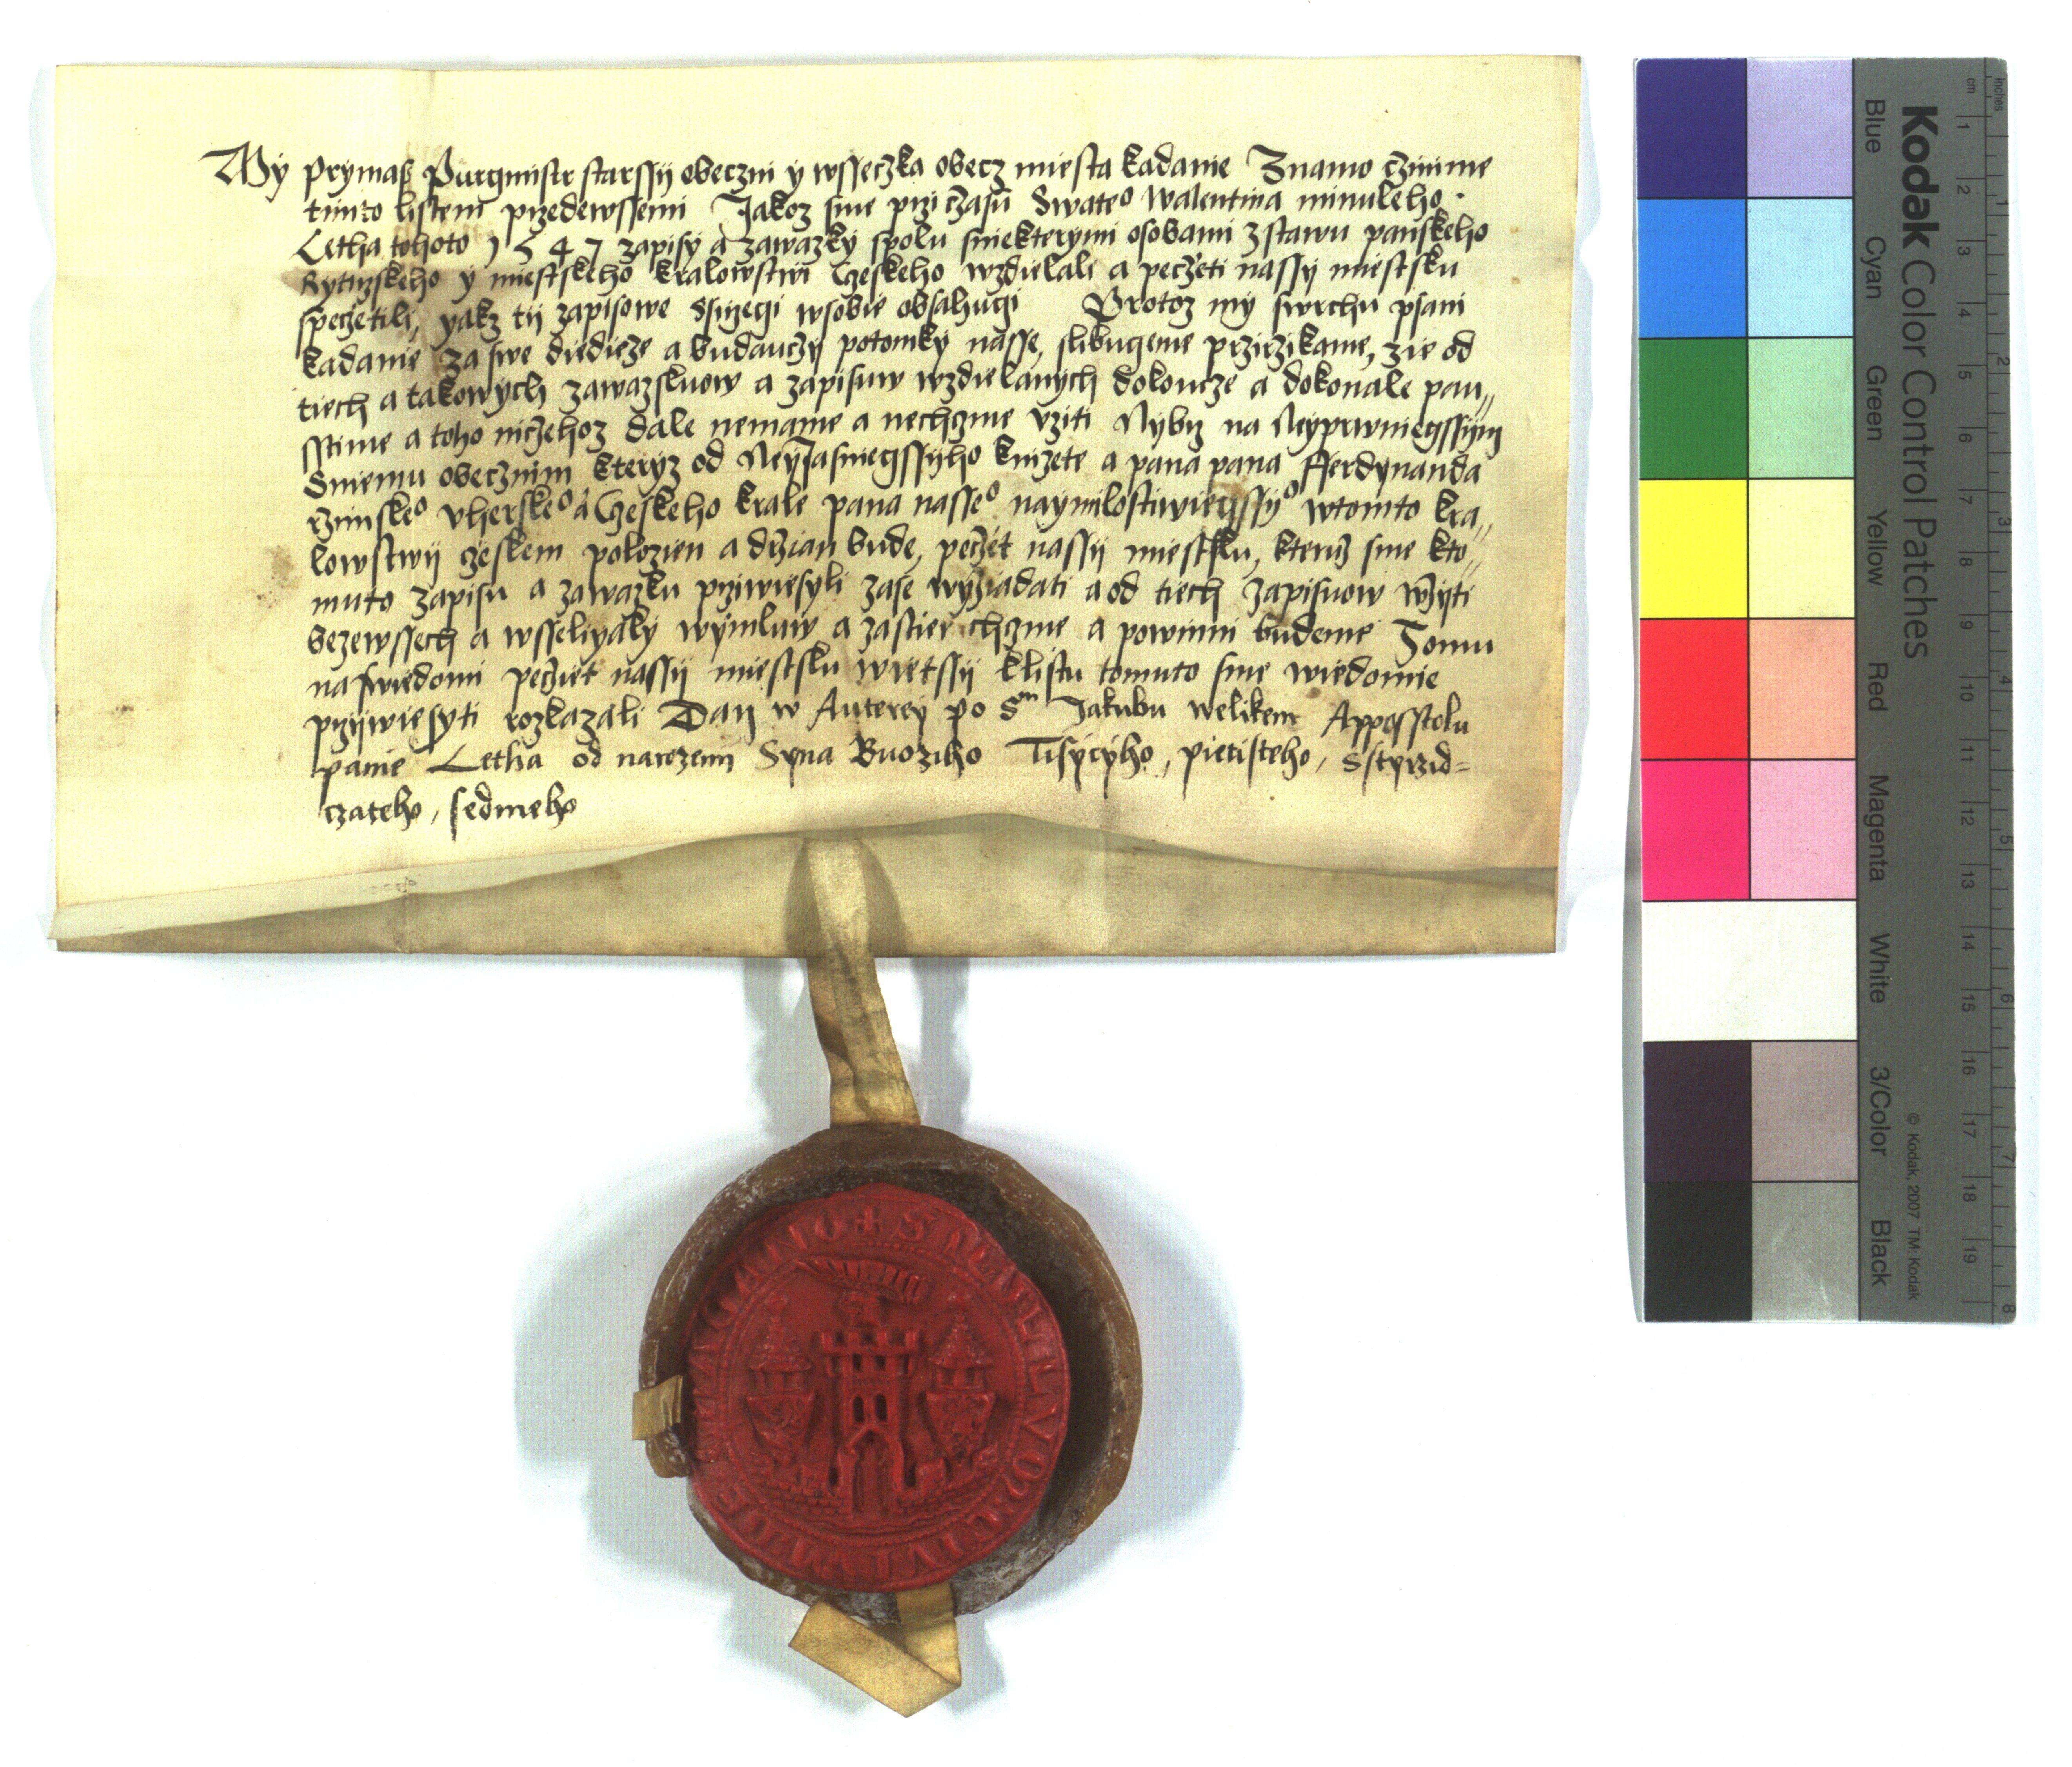 My Prymas Purgmistr starssij obeczni y wsseczka obecz miesta Kadanie Znamo czinime
timto listem przedewssemi Jakoz sme przi czasu Swateo Walentina minuleho.
Letha tohoto 1547 zapisy a zawazky spolu sniekterymi osobami zstawu panskeho
Rytirzskeho y miestskeho Kralowstwi Czeskeho wzdielali a peczeti nassy miestsku
speczetili, yakz tij zapisowe ssirzegi wsobie obsahugi Protoz my swrchu psani
Kadanie za swe diedicze a budauczy potomky nasse, slibugeme przirzikame, zie od
tiech a takowych zawazkuow a zapisuw wzdielanych dokoncze a dokonale pau„
sstime a toho niczehoz dale nemame a nechczme vziti Nybrz na Neyprwniegssym
Sniemu obecznim kteryz od NeyJasniegssyho knizete a pana pana Fferdynanda
rzimskeo vherskeo a Czeskeho krale pana nasseo naymilostiwiegssyo wtomto kra„
lowstwij czeskem polozien a drzian bude, peczet nassij miestsku, kteruz sme kto„
muto zapisu a zawazku prziwiesyli zase wyziadati a od tiech zapisuow wzijti
bezewssech a wsselijaky wymluw a zastier chczme a powinni budeme Tomu
na swiedomi peczet nassij miestsku wietssij klistu tomuto sme wiedomie
przijwiesyti rozkazali Dan w Auterey po Sm Jakubu welikem Apposstolu
panie Letha od narozeni Syna Buoziho Tisycyho, pietisteho, Sstyrzid=
czateho, sedmeho
Kodak Color Control Patches
© Kodak, 2007 TM: Kodak
Blue Cyan Green Yellow Red Magenta White 3/Color Black
cm 1 2 3 4 5 6 7 8 9 10 11 12 13 14 15 16 17 18 19
inches 1 2 3 4 5 6 7 8